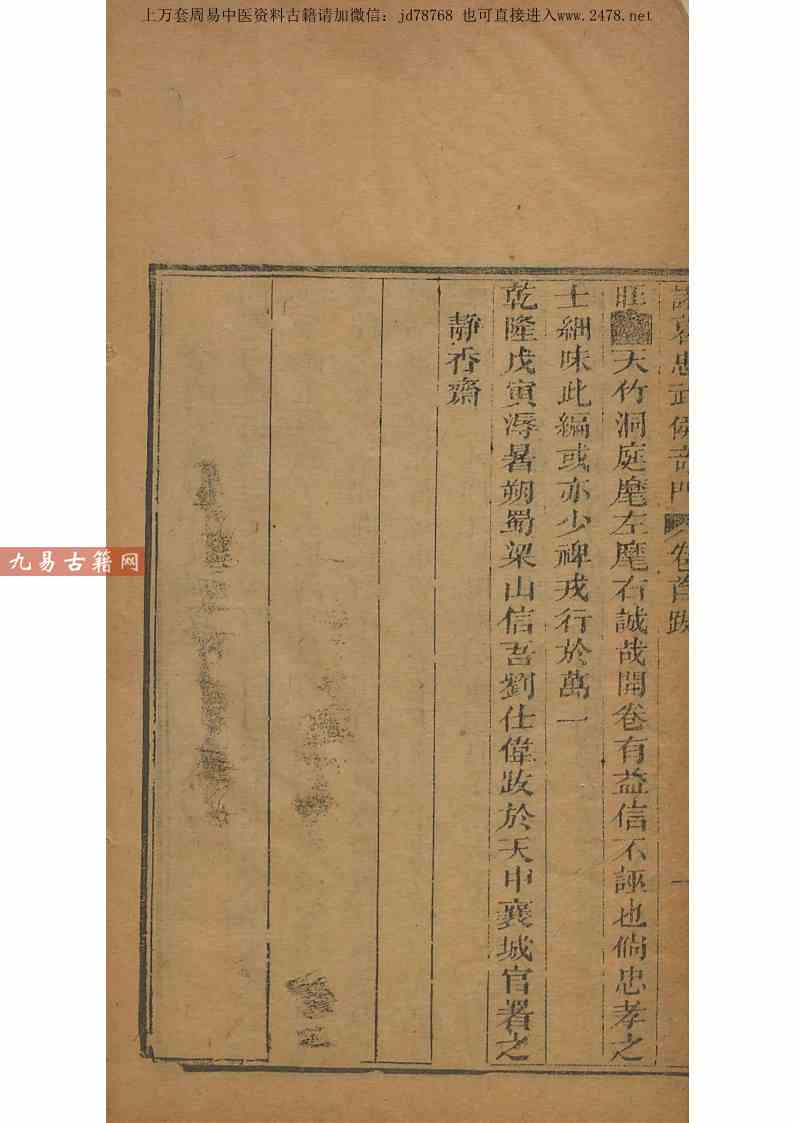 上万套周易中医资料古籍请加微信：jd78768 也可直接进入www.2478.net
忠武侯奇門 卷首跋
旺 天竹洞庭麾左麾右誠哉開卷有益信不誣也倘忠孝之
士細味此編或亦少裨戎行於萬一
乾隆戊寅溽暑朔蜀梁山信吾劉仕偉跋於天中襄城官署之
靜香齋
九易古籍网